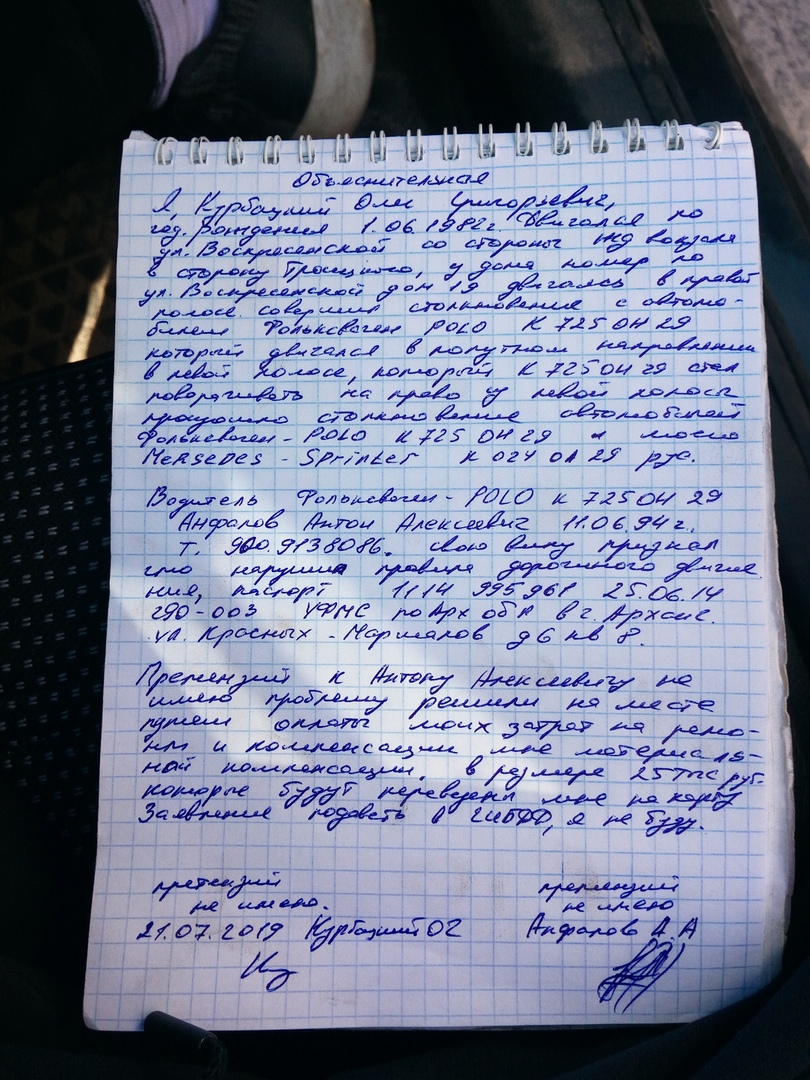 Объяснительная
Я, Курбацкий Олег Григорьевич,
год. рождения 1.06.1982г. Двигался по
ул. Воскресенской со стороны жд вокзала
в сторону Троицкого, у дома номер по
ул. Воскресенской дом 19 двигаясь в правой
полосе совершил столкновение с автомо-
билем Фольксваген POLO К 725 ОН 29
который двигался в попутном направлении
в левой полосе, который К 725 ОН 29 стал
поворачивать на право из левой полосы
произошло столкновение автомобилей
Фольксваген - POLO К 725 ОН 29 и моего
Mersedes - Sprinter К 024 ОА 29 рус.
Водитель Фольксваген - POLO К 725 ОН 29
Анфалов Антон Алексеевич 11.06.94 г.
т. 900.9138086. свою вину признал
что нарушил правила дорожного движе
ния, паспорт 1114 995961 25.06.14
290-003 УФМС по Арх обл в г. Арханг.
ул. Красных - Маршалов д 6 кв 8.
Претензий к Антону Алексеевичу не
имею проблему решили на месте
путем оплаты моих затрат на ремо-
нт и компенсации мне материаль-
ной компенсации. в размере 25 тыс руб.
которые будут переведены мне на карту
Заявление подавать в ГИБДД, я не буду.
претензий
не имею.
21.07.2019 Курбацкий ОГ
претензий
не имею
Анфалов А.А